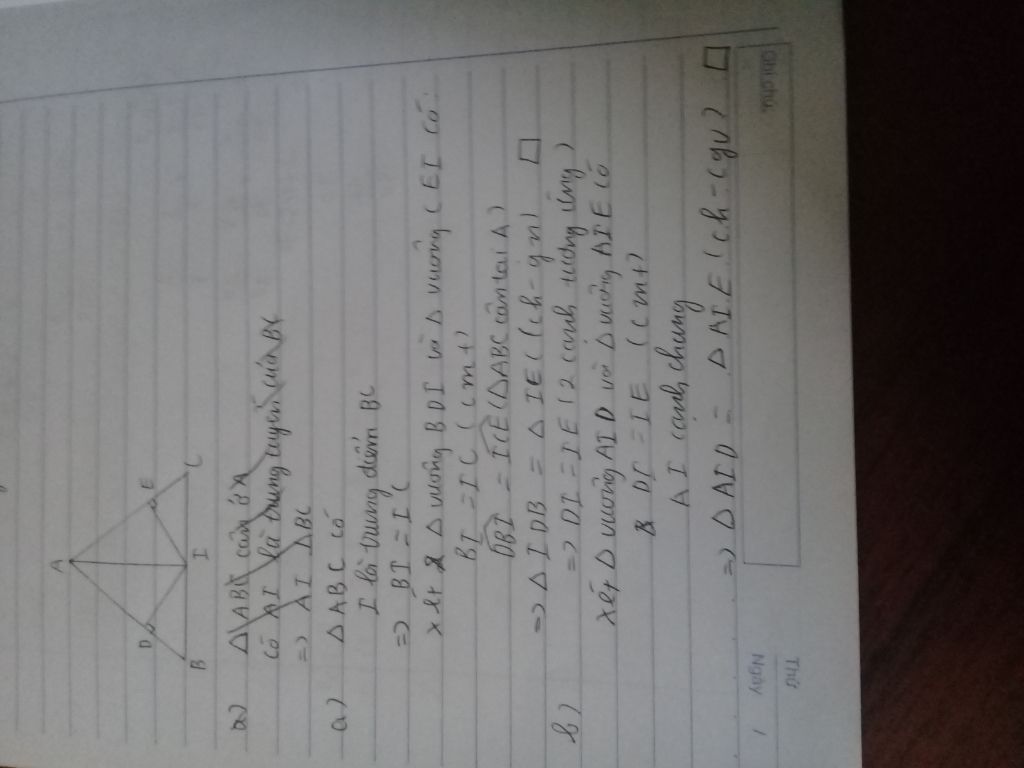 A
D
E
B
I
C
a) △ABC cân ở A
có AI là trung tuyến của BC
=> AI △BC
a) △ABC có
I là trung điểm BC
=> BI = IC
xét 2 △ vuông BDI và △ vuông CEI có
BI = IC (cmt)
DBI = ICE (△ABC cân tại A)
=> △IDB = △IEC (ch-gn) □
b) => DI = IE (2 cạnh tương ứng)
xét △ vuông AID và △ vuông AIE có
DI = IE (cmt)
AI cạnh chung
=> △AID = △AIE (ch-cgv) □
Thứ
Ngày /
Ghi chú